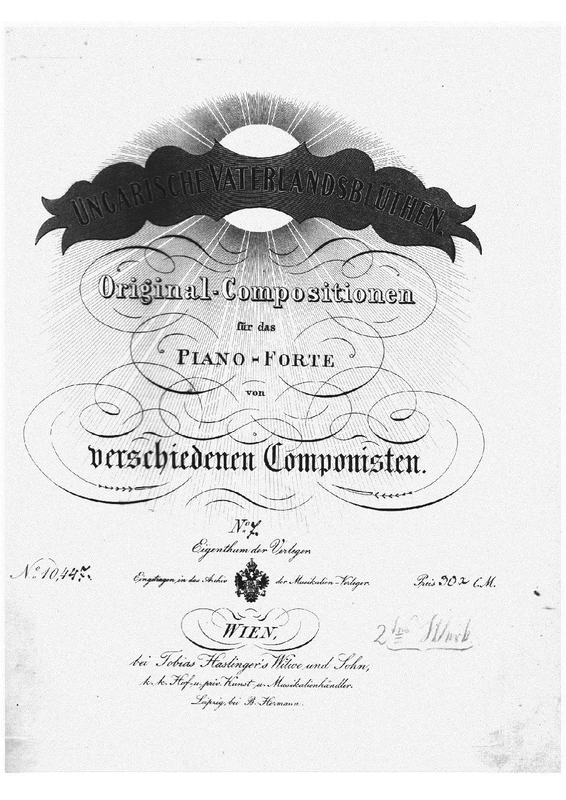 UNGARISCHE VATERLANDSBLÜTHEN.
Original-Compositionen
für das
PIANO-FORTE
von
verschiedenen Componisten.
No. 7.
Eigenthum der Verleger
No. 10,447.
Eingetragen in das Archiv der Musikalien-Verleger.
Preis 30 x C.M.
WIEN,
bei Tobias Haslinger's Witwe und Sohn,
k. k. Hof- u. priv. Kunst- u. Musikalienhändler.
Leipzig, bei B. Hermann.